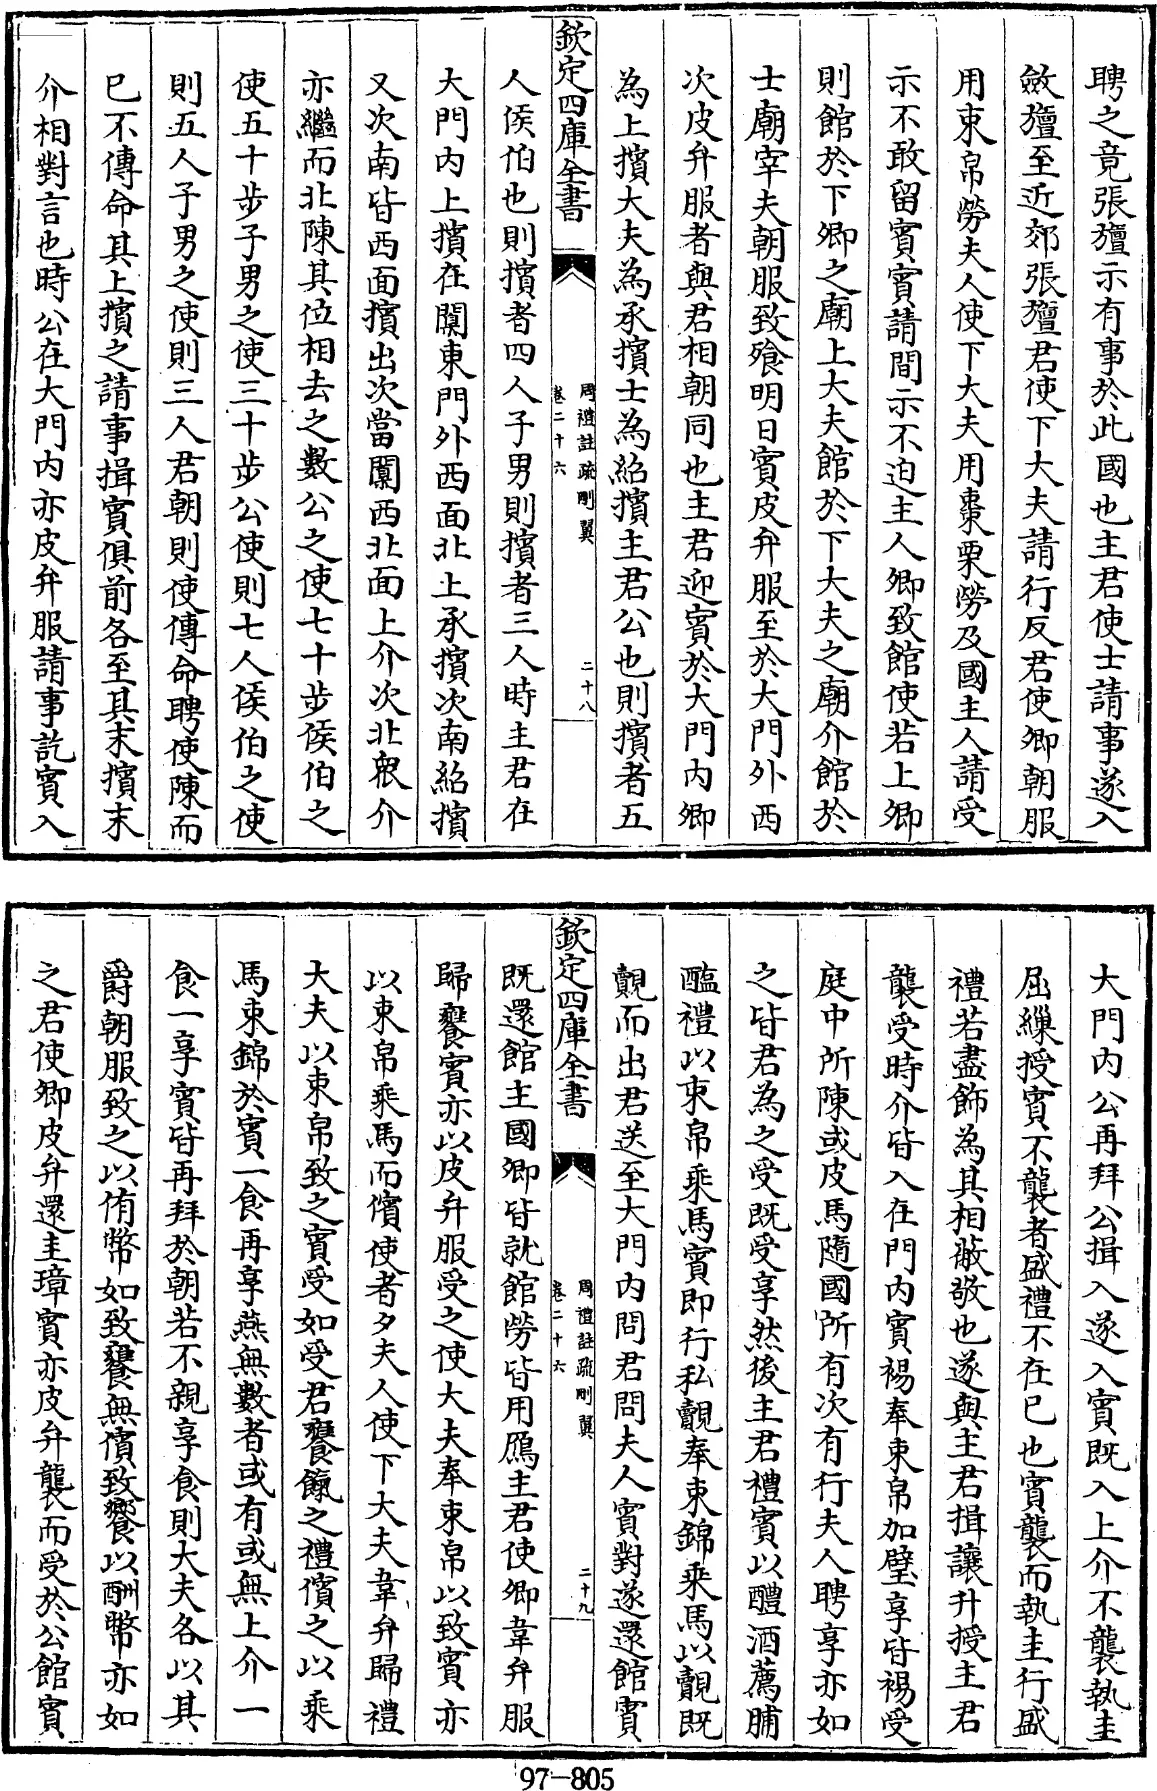 聘之竟張旜示有事於此國也主君使士請事遂入
斂旜至近郊張旜君使下大夫請行反君使卿朝服
用束帛勞夫人使下大夫用棗栗勞及國主人請受
示不敢留賓賓請間示不迫主人卿致館使若上卿
則館於下卿之廟上大夫館於下大夫之廟介館於
士廟宰夫朝服致飱明日賓皮弁服至於大門外西
次皮弁服者與君相朝同也主君迎賓於大門內卿
為上擯大夫為承擯士為紹擯主君公也則擯者五
欽定四庫全書
周禮註疏刪翼
卷二十六
二十八
人侯伯也則擯者四人子男則擯者三人時主君在
大門內上擯在闑東門外西面北上承擯次南紹擯
又次南皆西面擯出次當闑西北面上介次北衆介
亦繼而北陳其位相去之數公之使七十步侯伯之
使五十步子男之使三十步公使則七人侯伯之使
則五人子男之使則三人君朝則使傳命聘使陳而
已不傳命其上擯之請事揖賓俱前各至其末擯末
介相對言也時公在大門內亦皮弁服請事訖賓入
大門內公再拜公揖入遂入賓既入上介不襲執圭
屈繅授賓不襲者盛禮不在已也賓襲而執圭行盛
禮若盡飾為其相蔽敬也遂與主君揖讓升授主君
襲受時介皆入在門內賓裼奉束帛加璧享皆裼受
庭中所陳或皮馬隨國所有次有行夫人聘享亦如
之皆君為之受既受享然後主君禮賓以醴酒薦脯
醢禮以束帛乘馬賓即行私覿奉束錦乘馬以覿既
覿而出君送至大門內問君問夫人賓對遂還館賓
欽定四庫全書
周禮註疏刪翼
卷二十六
二十九
既還館主國卿皆就館勞皆用鴈主君使卿韋弁服
歸饔賓亦以皮弁服受之使大夫奉束帛以致賓亦
以束帛乘馬而儐使者夕夫人使下大夫韋弁歸禮
大夫以束帛致之賓受如受君饔餼之禮儐之以乘
馬束錦於賓一食再享燕無數者或有或無上介一
食一享賓皆再拜於朝若不親享食則大夫各以其
爵朝服致之以侑幣如致饔無儐致饗以酬幣亦如
之君使卿皮弁還圭璋賓亦皮弁襲而受於公館賓
97-805